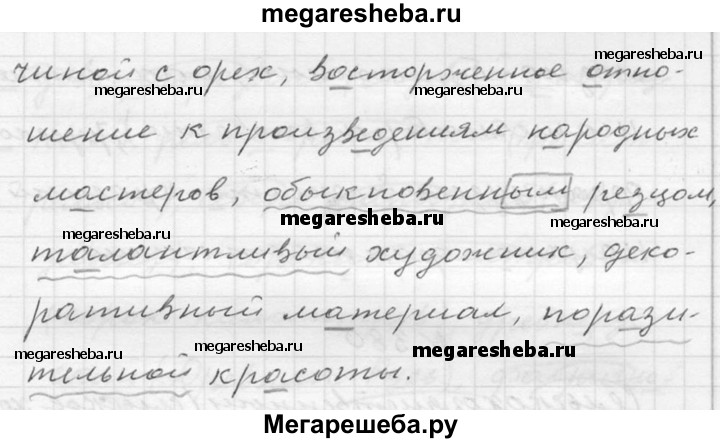 megaresheba.ru
чиной с орех, восторженное отно-
megaresheba.ru
megaresheba.ru
megaresheba.ru
шение к произведениям народных
мастеров, обыкновенным резцом,
megaresheba.ru
megaresheba.ru
megaresheba.ru
талантливый художник, деко-
ративный материал, порази-
megaresheba.ru
megaresheba.ru
megaresheba.ru
тельной красоты.
Мегарешеба.ру